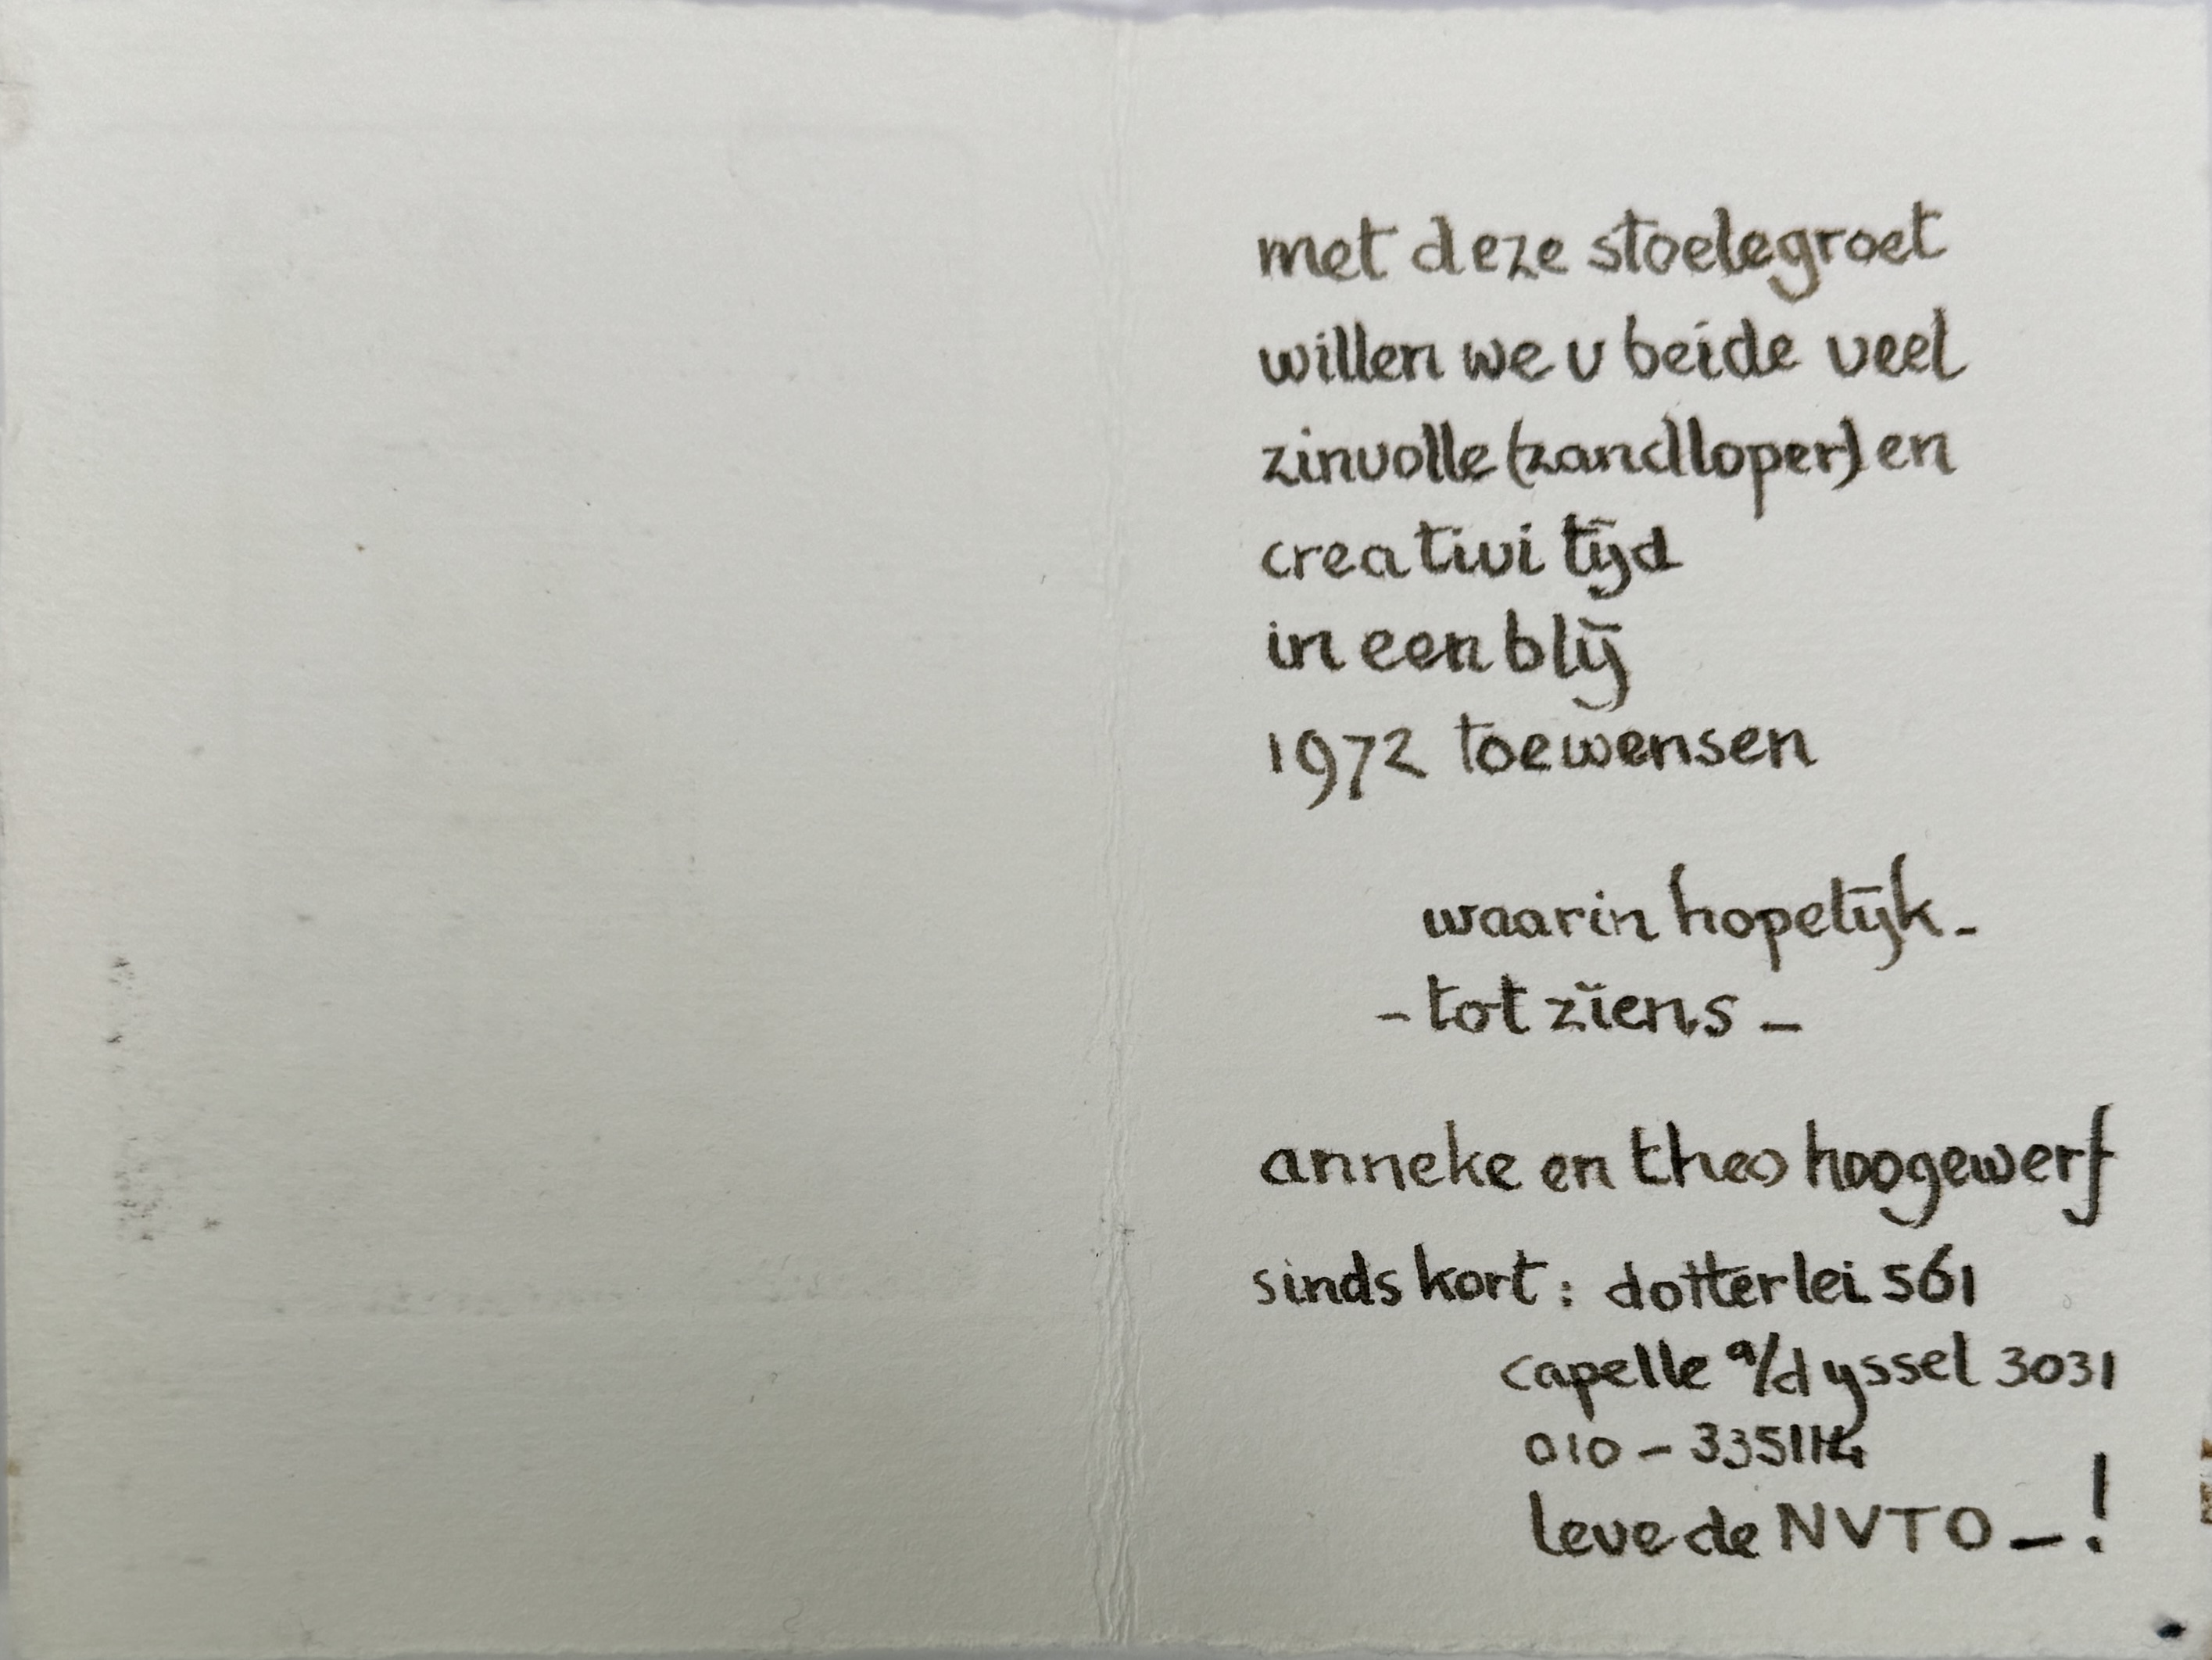 met deze stoelegroet
willen we u beide veel
zinvolle (zandloper) en
creativi tijd
in een blij
1972 toewensen
waarin hopelijk -
- tot ziens -
anneke en theo hoogewerf
sinds kort : dotterlei 561
capelle a/d yssel 3031
010 - 335114
leve de NVTO - !